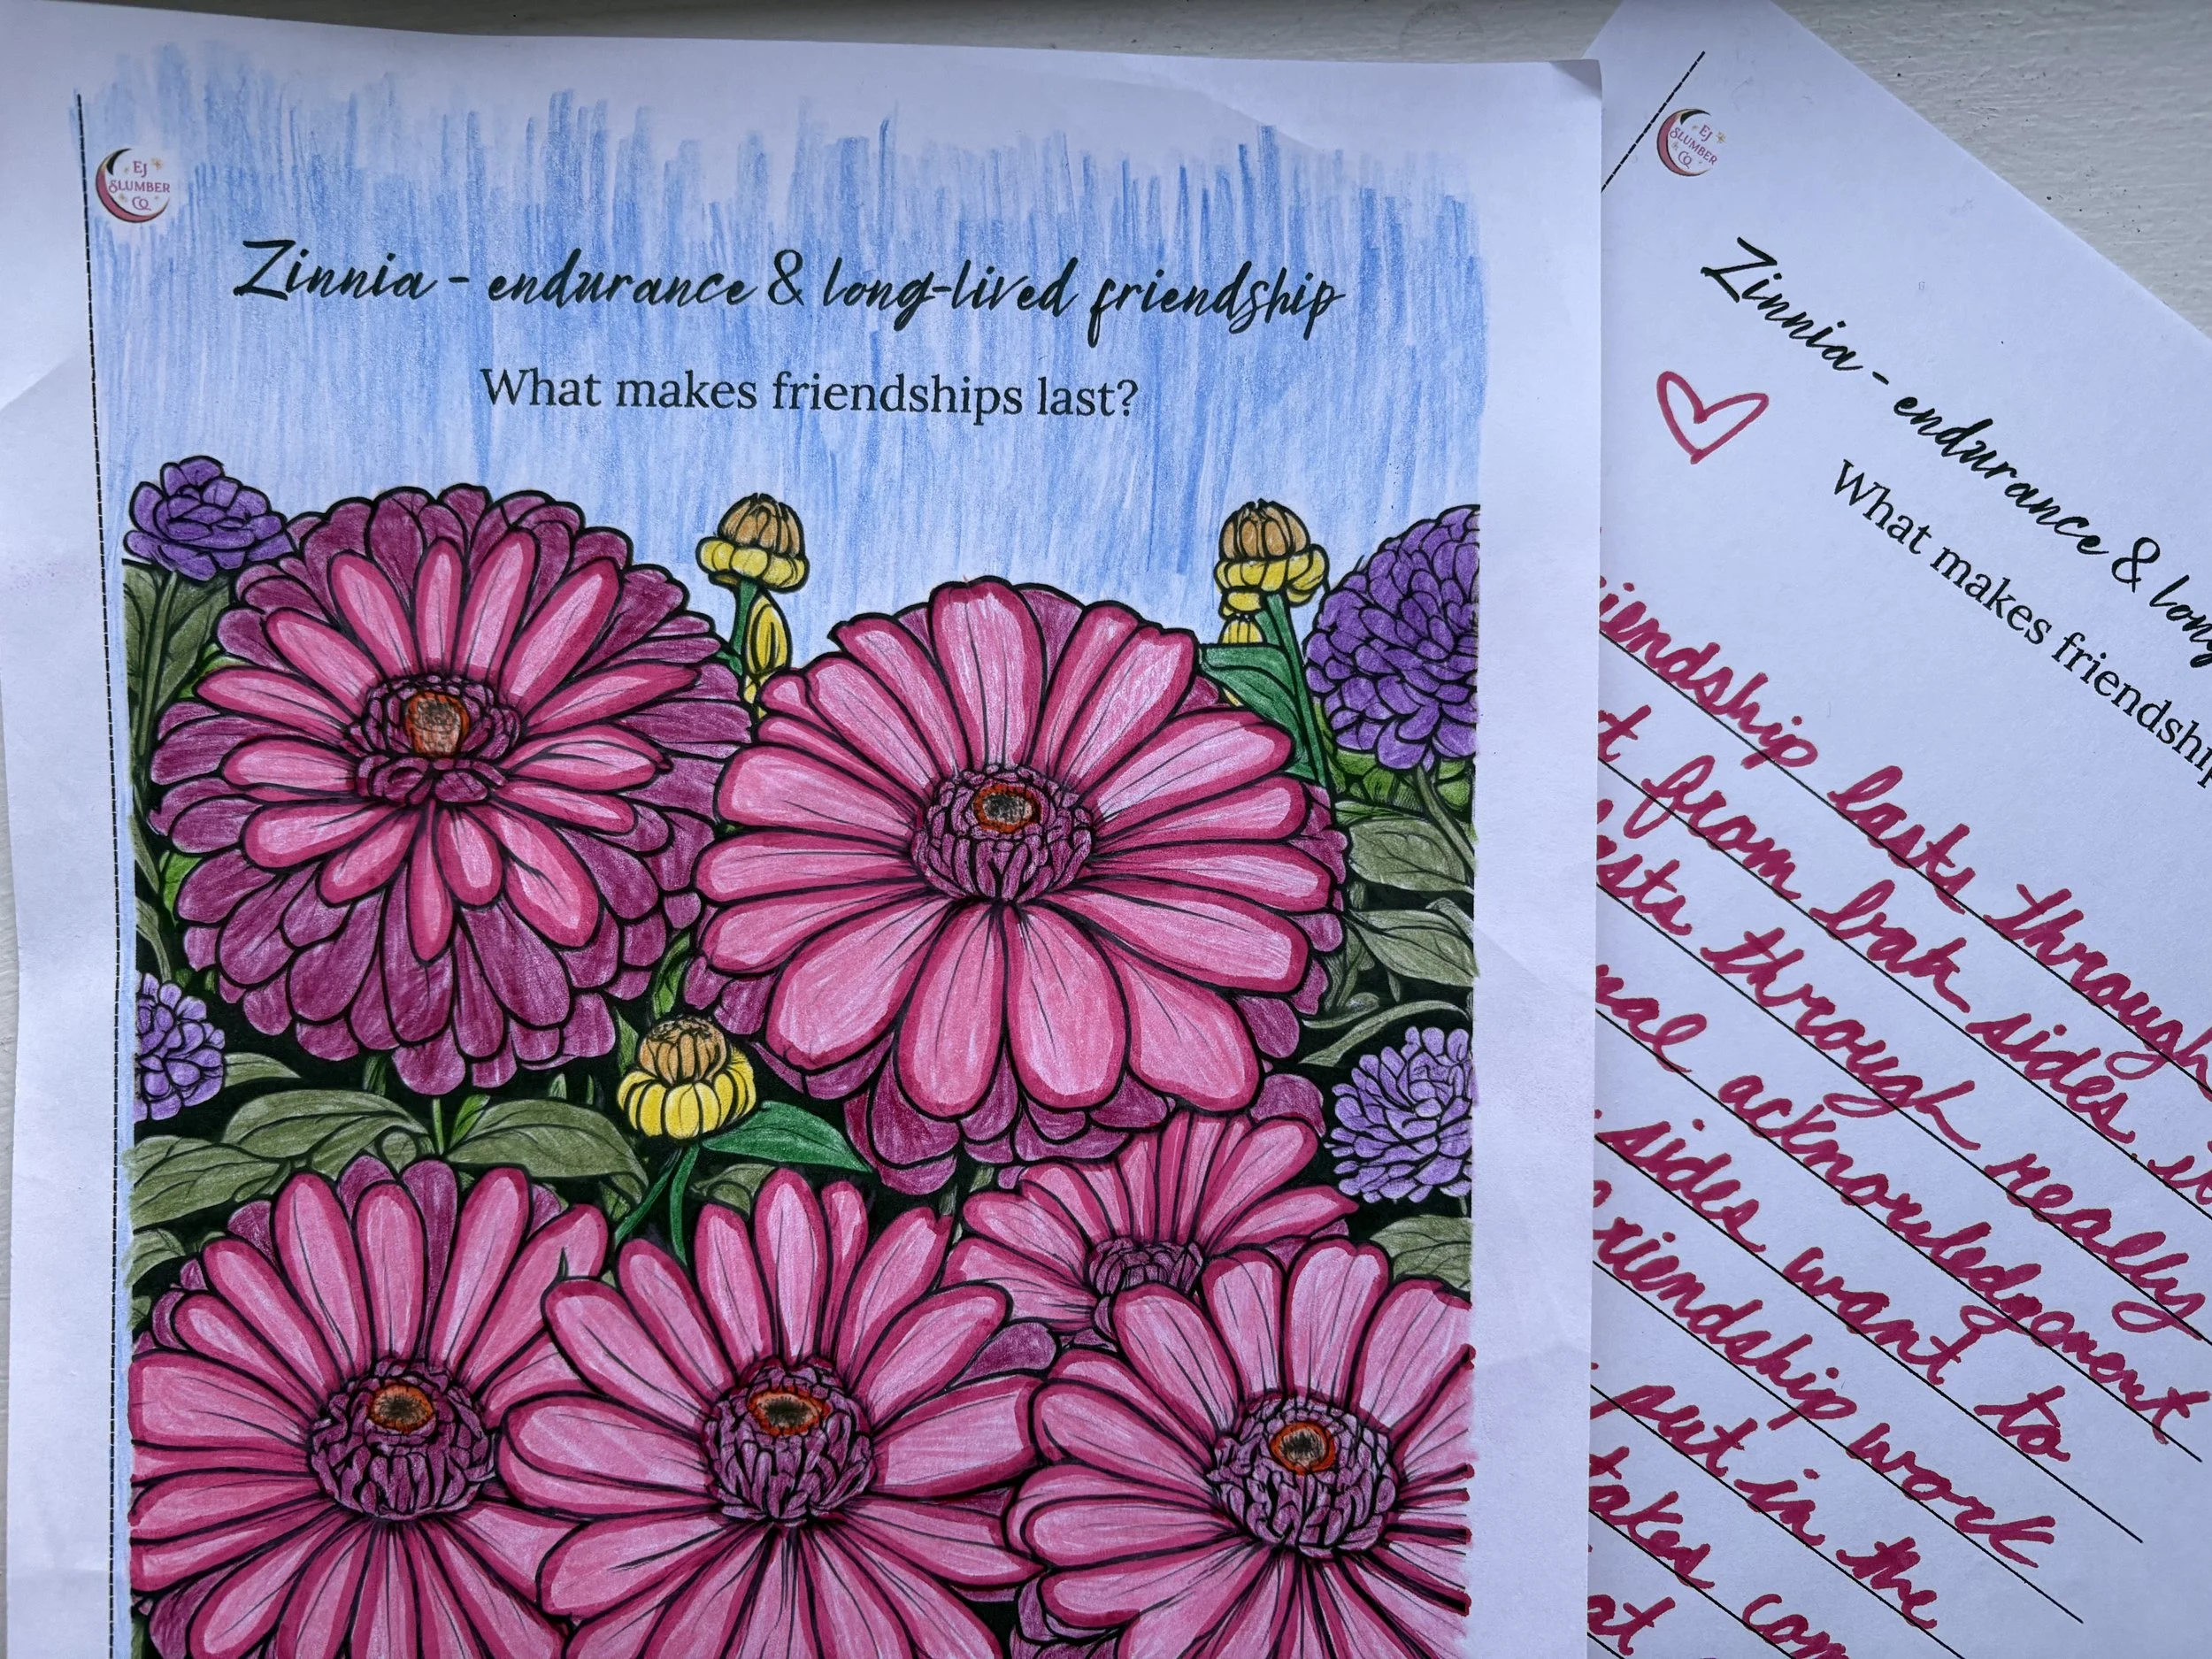 EJ
SLUMBER
CO
Zinnia - endurance & long-lived friendship
What makes friendships last?
EJ
SLUMBER
CO
Zinnia - endurance & long
What makes friendship
iendship lasts through
t from both sides, it
sts through really
nal acknowledgement
sides want to
friendship work
put in the
takes com
at